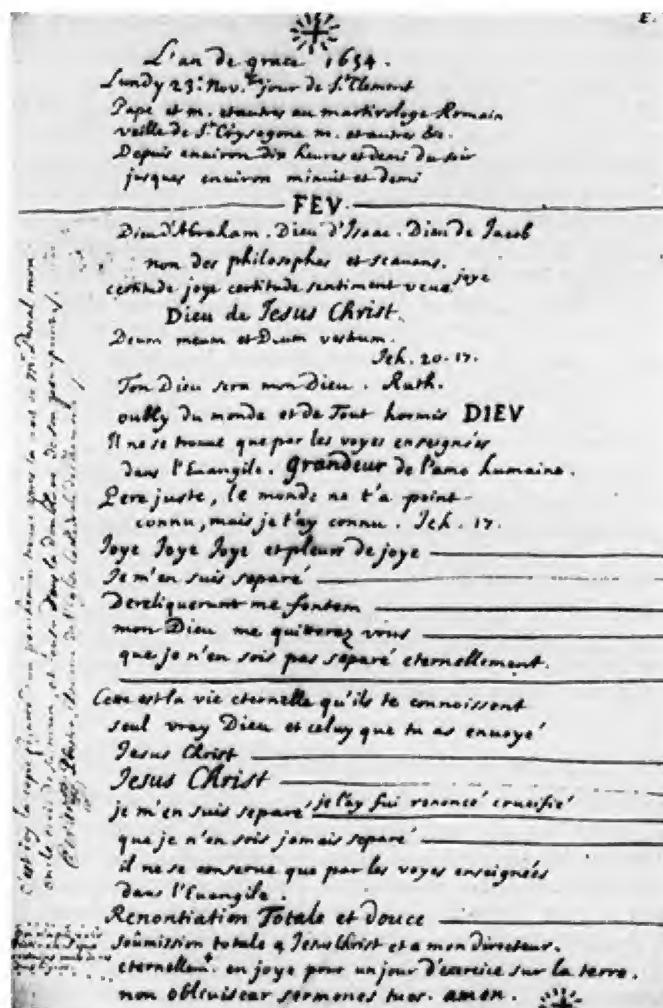 E.
L'an de grace 1654.
Lundy 23e. Nov.bre jour de St. Clement
Pape et m. et autres au martirologe Romain
veille de St. Crysogone m. et autres &c.
Depuis environ dix heures et demi du soir
jusques environ minuit et demi
FEV.
Dieu d'Abraham. Dieu d'Isaac. Dieu de Jacob
non des philosophes et scavans.
certitude joye certitude sentiment veue joye
Dieu de Jesus Christ.
Deum meum et Deum vestrum.
Jeh. 20. 17.
Ton Dieu sera mon Dieu. Ruth.
oubly du monde et de Tout hormis DIEV
Il ne se trouve que par les voyes enseignées
dans l'Euangile. Grandeur de l'ame humaine.
Pere juste, le monde ne t'a point
connu, mais je t'ay connu. Jeh. 17.
Joye Joye Joye et pleurs de joye
Je m'en suis separé
Dereliquerunt me fontem
mon Dieu me quitterez vous
que je n'en sois pas separé eternellement.
Cette est la vie eternelle qu'ils te connoissent
seul vray Dieu et celuy que tu as envoyé
Jesus Christ
Jesus Christ
je m'en suis separé je l'ay fui renoncé crucifié
que je n'en sois jamais separé
il ne se conserve que par les voyes enseignées
dans l'Euangile.
Renontiation Totale et douce
soûmission totale a Jesus Christ et a mon directeur.
eternellemt. en joye pour un jour d'exercice sur la terre.
non obliviscar sermones tuos. amen.